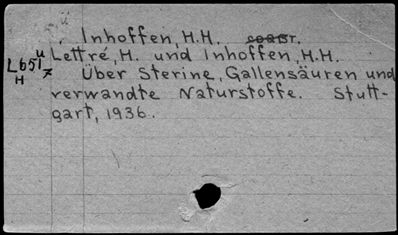 Inhoffen, H.H. coaut.
Lettré, H. und Inhoffen, H.H.
L651u
H 7
Über Sterine, Gallensäuren und
verwandte Naturstoffe. Stutt-
gart, 1936.